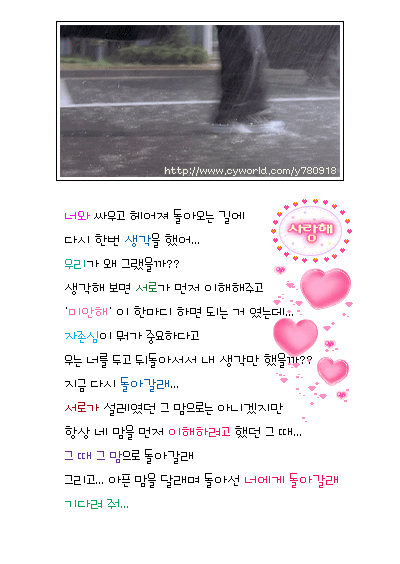 http://www.cyworld.com/y780918
너와 싸우고 헤어져 돌아오는 길에
사랑해
다시 한번 생각을 했어...
우리가 왜 그랬을까??
생각해 보면 서로가 먼저 이해해주고
'미안해' 이 한마디 하면 되는 거 였는데...
자존심이 뭐가 중요하다고
우는 너를 두고 뒤돌아서서 내 생각만 했을까??
지금 다시 돌아갈래...
서로가 설레였던 그 맘으로는 아니겠지만
항상 네 맘을 먼저 이해하려고 했던 그 때...
그 때 그 맘으로 돌아갈래
그리고... 아픈 맘을 달래며 돌아선 너에게 돌아갈래
기다려 줘...